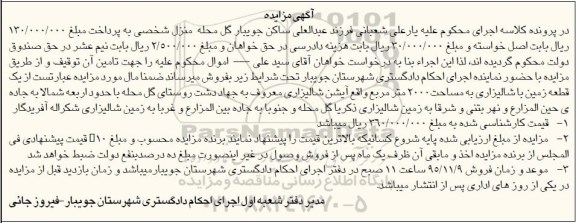 آگهی مزایده
در پرونده کلاسه اجرای محکوم علیه یارعلی شعبانی فرزند عبدالعلی ساکن جویبار گل محله منزل شخصی به پرداخت مبلغ ۱۳۰/۰۰۰/۰۰۰
ریال بابت اصل خواسته و مبلغ ۳۰/۰۰۰/۰۰۰ ریال بابت هزینه دادرسی در حق خواهان و مبلغ ۲/۵۰۰/۰۰۰ ریال بابت نیم عشر در حق صندوق
دولت محکوم گردیده اند، لذا این اجراء بنا به درخواست خواهان آقای سید علی --- اموال محکوم علیه را جهت تامین آن توقیف و از طریق
مزایده با حضور نماینده اجرای احکام دادگستری شهرستان جویبار تحت شرایط زیر بفروش میرساند ضمنا مال مورد مزایده عبارتست از یک
قطعه زمین با شالیزاری به مساحت ۲۰۰۰ متر مربع واقع آیشن شالیزاری معروف به جهاد دشت روستای گل محله با حدود اربعه شمالا به جاده
ی حین المزارع و نهر بتنی و شرقا به زمین شالیزاری ذکریا گل محله و جنوبا به جاده بین المزارع و غربا به زمین شالیزاری شکراله آفریدگار
۱- قیمت کارشناسی شده به مبلغ ۳۶۰/۰۰۰/۰۰۰ ریال میباشد
۲- مزایده از مبلغ ارزیابی شده پایه شروع کسانیکه بالاترین قیمت را پیشنهاد نمایند برنده مزایده محسوب و مبلغ ۱۰ قیمت پیشنهادی فی
المجلس از برنده مزایده اخذ و مابقی آن ظرف یک ماه پس از فروش وصول در غیر اینصورت مبلغ ده درصد بنفع دولت ضبط خواهد شد
۳- موعد و زمان فروش ۹۵/۱۱/۹ ساعت ۱۱ صبح در دفتر اجرای احکام دادگستری شهرستان جویبار میباشد و زمان بازدید قبل از مزایده
در یکی از روز های اداری پس از انتشار میباشد.
مدیر دفتر شعبه اول اجرای احکام دادگستری شهرستان جویبار - فیروز جانی